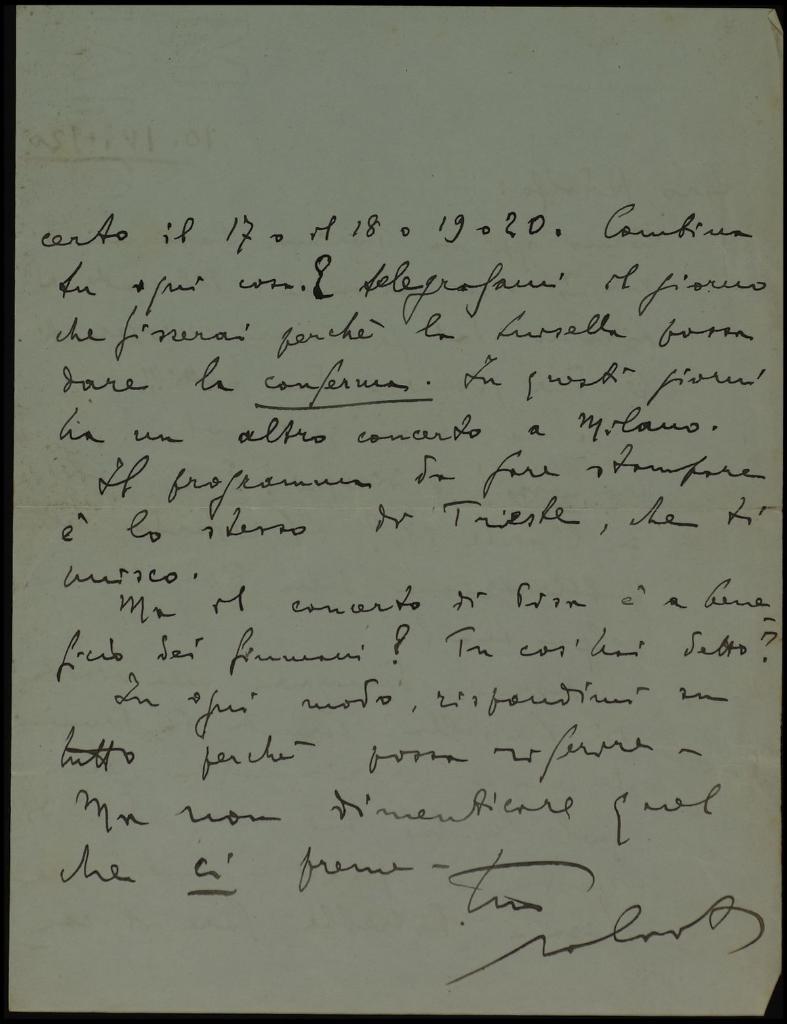 certo il 17 o il 18 o 19 o 20. Combina
tu ogni cosa. E telegrafami il giorno
che fisserai perchè la Luisella possa
dare la conferma. In questi giorni
ha un altro concerto a Milano.
Il programma da fare stampare
è lo stesso di Trieste, che ti
unisco.
Ma il concerto di Pisa è a bene=
ficio dei fiumani? Tu cos' hai detto?
In ogni modo, rispondimi su
tutto perchè possa riferire –
Ma non dimenticare quel
che ci preme – Tuo